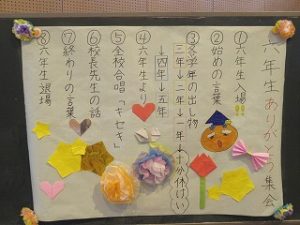 六年生ありがとう集会
①六年生入場!!
②始めの言葉
③各学年の出し物
三年→二年→一年→十分休けい
→四年→五年
④六年生より
⑤全校合唱「キセキ」
⑥校長先生の話
⑦終わりの言葉
⑧六年生退場